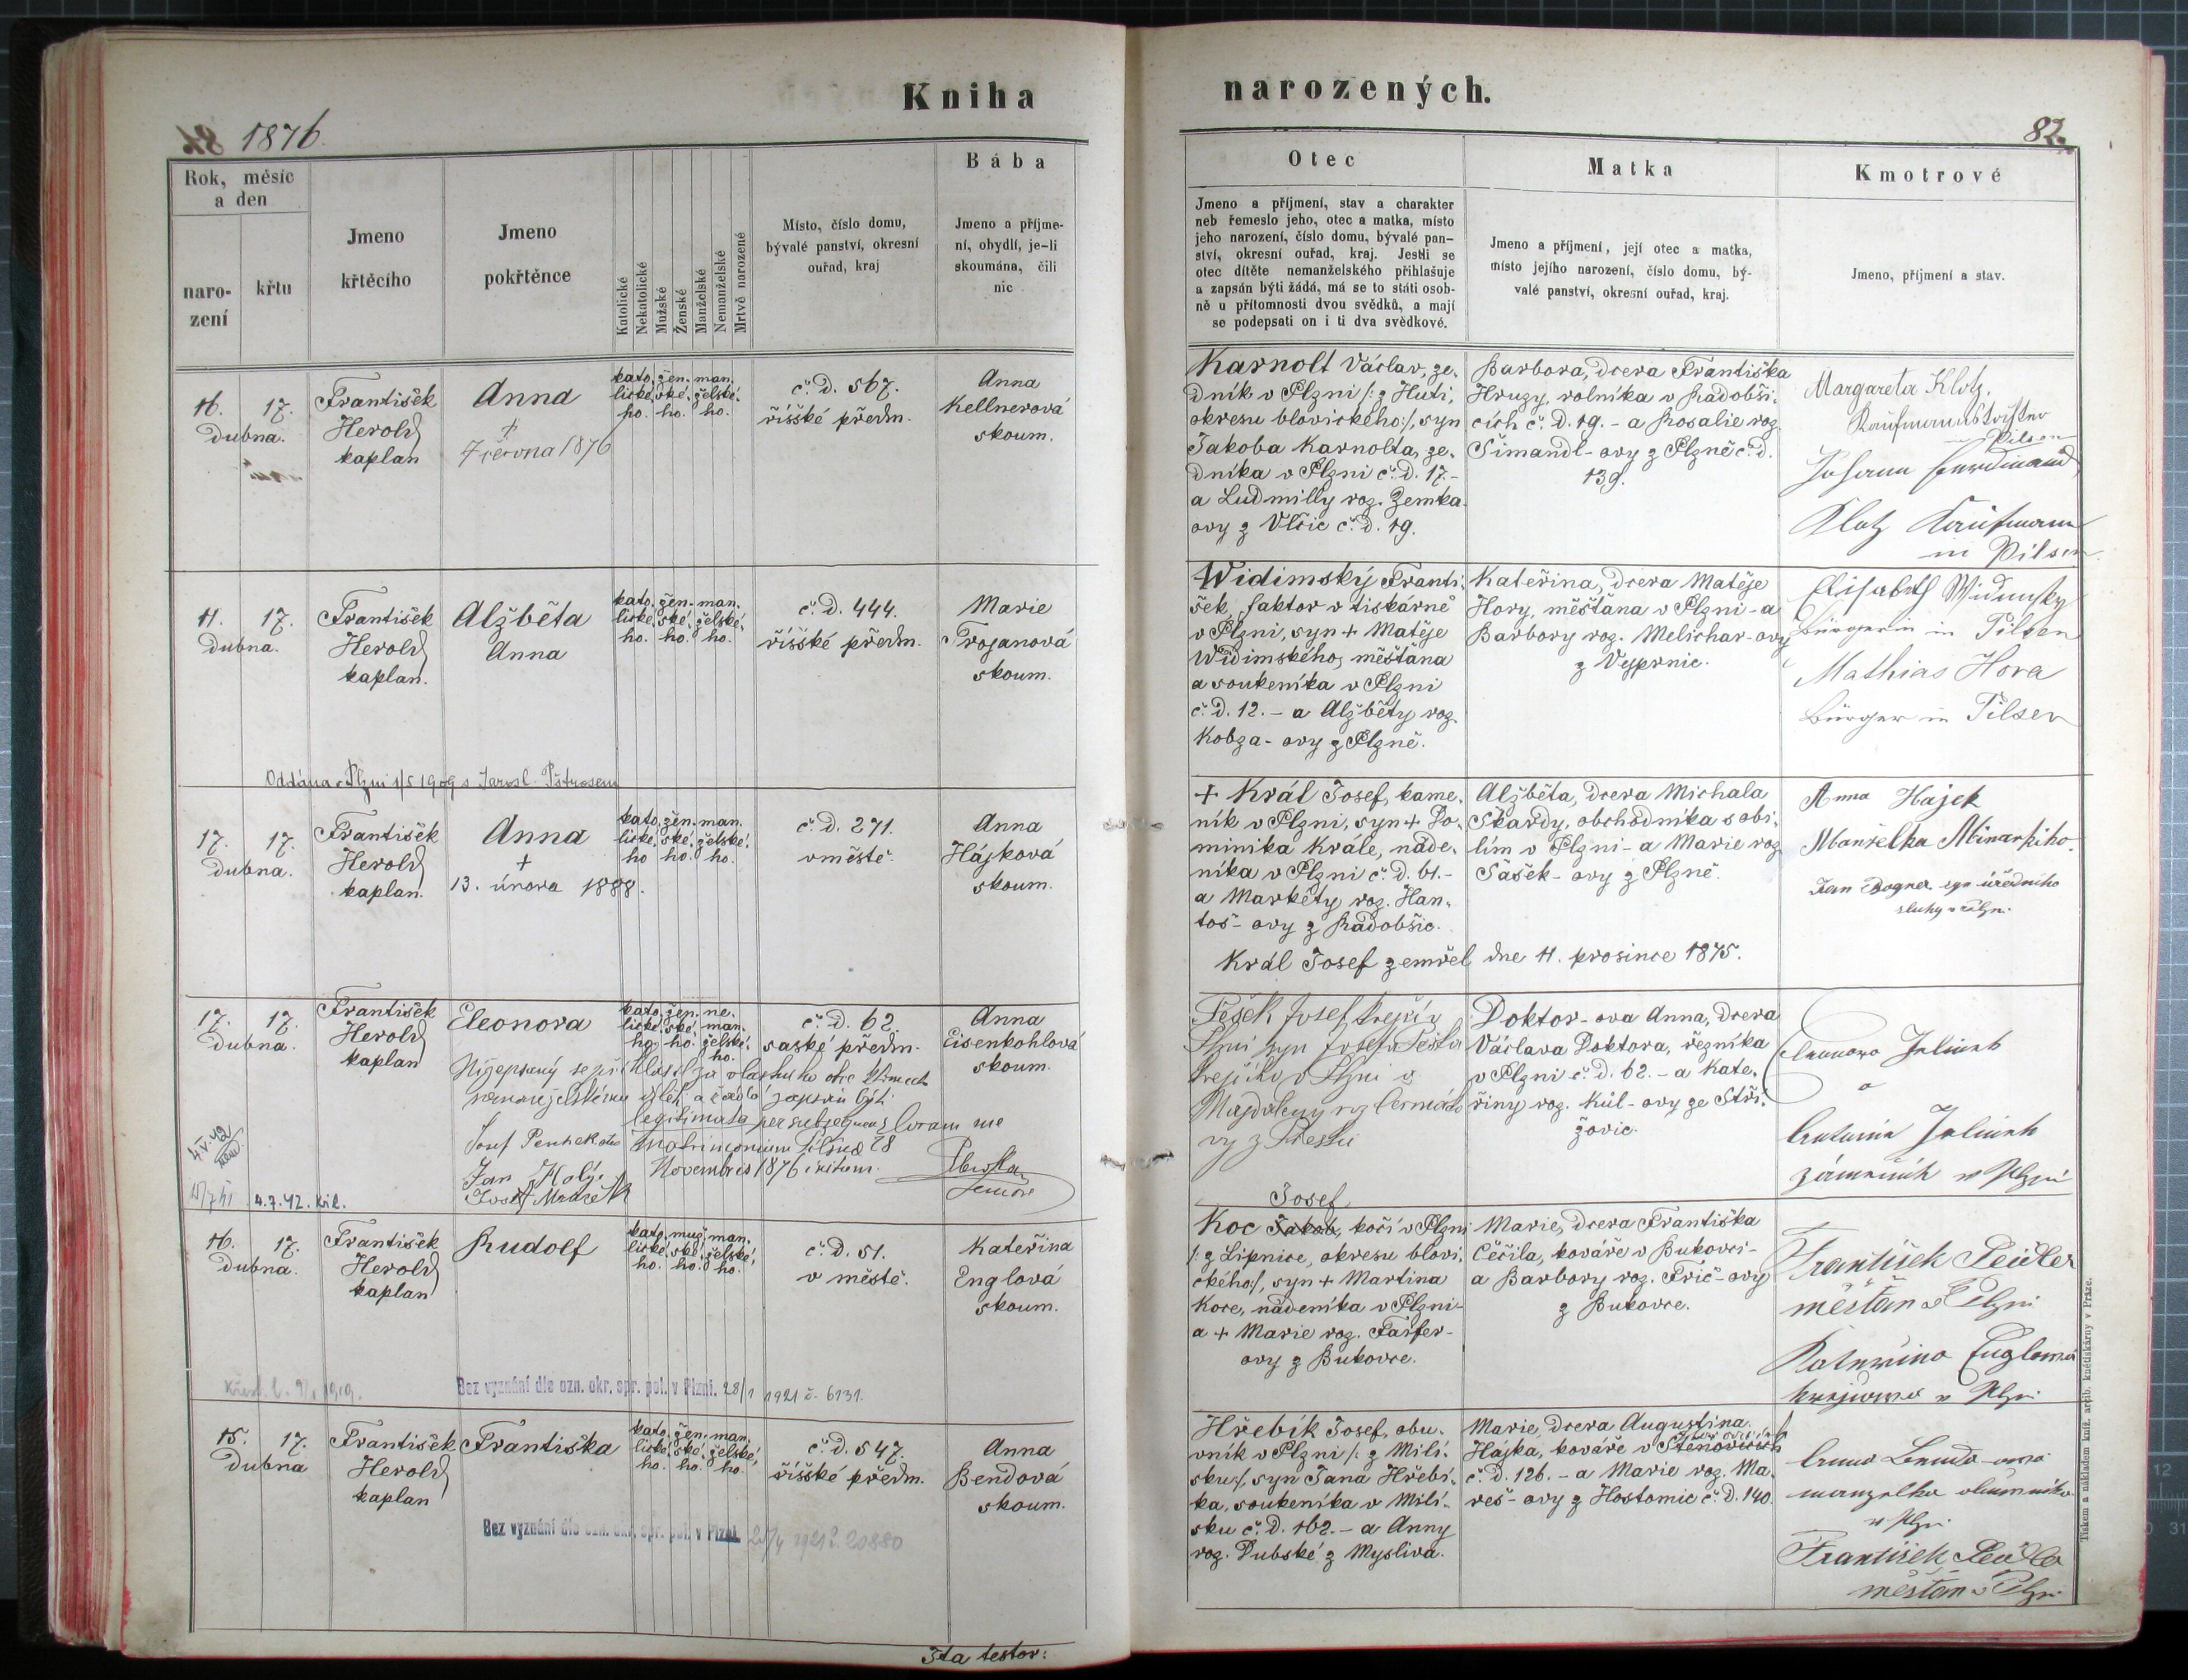 Kniha
narozených.
1876.
82.
Rok, měsíc
a den
naro-
zení
křtu
Jmeno
křtěcího
Jmeno
pokřtěnce
Katolické
Nekatolické
Mužské
Ženské
Manželské
Nemanželské
Mrtvě narozené
Místo, číslo domu,
bývalé panství, okresní
ouřad, kraj
Bába
Jmeno a příjme-
ní, obydlí, je-li
skoumána, čili
nic
Otec
Jmeno a příjmení, stav a charakter
neb řemeslo jeho, otec a matka, místo
jeho narození, číslo domu, bývalé pan-
ství, okresní ouřad, kraj. Jestli se
otec dítěte nemanželského přihlašuje
a zapsán býti žádá, má se to státi osob-
ně u přítomnosti dvou svědků, a mají
se podepsati on i ti dva svědkové.
Matka
Jmeno a příjmení, její otec a matka,
místo jejího narození, číslo domu, bý-
valé panství, okresní ouřad, kraj.
Kmotrové
Jmeno, příjmení a stav.
16. 17.
Dubna.
František
Herold
kaplan
Anna
†
7 června 1876
kato. žen. man.
lické. ské. želské.
ho. ho. ho.
č. D. 567.
říšské předm.
Anna
Kellnerová
skoum.
Karnolt Václav, ze-
dník v Plzni /: z Huti,
okresu blovického :/, syn
Jakoba Karnolta, ze-
dníka v Plzni č. D. 17.-
a Ludmilly roz. Zemka-
ovy z Vlčic č. D. 19.
Barbora, dcera Františka
Hruzy, rolníka v Radobči-
cích č. D. 19. - a Rosalie roz.
Šimandl-ovy z Plzně č. D.
139.
Margareta Klotz,
Kaufmanns
Pilsen
Johann Ferdinand
Klotz Kaufmann
in Pilsen.
11. 17.
Dubna.
František
Herold
kaplan.
Alžběta
Anna
kato. žen. man.
lické. ské. želské.
ho. ho. ho.
č. D. 444.
říšské předm.
Marie
Trojanová
skoum.
Widimský Franti-
šek, faktor v tiskárně
v Plzni, syn + Matěje
Widimského, měšťana
a soukeníka v Plzni
č. D. 12. - a Alžběty roz.
Kobza-ovy z Plzně.
Kateřina, dcera Matěje
Hory, měšťana v Plzni - a
Barbory roz. Melichar-ovy
z Vyprnic.
Elisabeth Widimsky
Bürgerin in Pilsen
Mathias Hora
Bürger in Pilsen
Oddána v Plzni 1/5 1909 s Jarosl. Pštrosem
17. 17.
Dubna.
František
Herold
kaplan.
Anna
+
13. února 1888.
kato. žen. man.
lické. ské. želské.
ho ho. ho.
č. D. 271.
v městě.
Anna
Hájková
skoum.
+ Král Josef, kame-
ník v Plzni, syn + Do-
minika Krále, náde-
níka v Plzni č. D. 61.-
a Markéty roz. Han-
toš-ovy z Radobčic.
Král Josef zemřel dne 11. prosince 1875.
Alžběta, dcera Michala
Škardy, obchodníka s obi-
lím v Plzni - a Marie roz.
Šašek-ovy z Plzně.
Anna Hajek
Manželka Minarského.
Jan Bogner syn úředního
sluhy v Plzni.
17. 17.
Dubna.
František
Herold
kaplan
Eleonora
kato. žen. ne-
lické. ské. man.
ho. ho. želské.
ho.
č. D. 62.
saské předm.
Anna
Eisenkohlová
skoum.
Nížepsaný se přihlásil za vlastního otce k tomuto
nemanželskému dítěti a žádá zapsán býti.
legitimata per subsequens Coram me
matrimonium Pilsnae 28
Novembris 1876 initum.
Jan Holý
Josef Mrázek
4.7.42. Kil.
Pešek Josef krejčí v
Plzni syn Josefa Peška
krejčího v Plzni a
Majdaleny roz. Čermák-o
vy z
Doktor-ova Anna, dcera
Václava Doktora, řezníka
v Plzni č. D. 62. - a Kate-
řiny roz. Kůl-ovy ze Stří-
žovic.
Eleonora Jelinek
a
Antonín Jelinek
zámečník v Plzni
16. 17.
Dubna.
František
Herold
kaplan
Rudolf
kato. muž. man.
lické. ské. želské.
ho. ho. ho.
č. D. 51.
v městě.
Kateřina
Englová
skoum.
Josef
Koc Jakob, kočí v Plzni
/: z Lipnice, okresu blovi-
ckého :/, syn + Martina
Koce, nádeníka v Plzni -
a + Marie roz. Farfer-
ovy z Bukovce.
Marie, dcera Františka
Čečila, kováře v Bukovci -
a Barbory roz. Frič-ovy
z Bukovce.
František Peidler
měšťan v Plzni
Kateřina Englová
v Plzni
Bez vyznání dle ozn. okr. spr. pol. v Plzni. 28/1 1921 č. 6131.
15. 17.
Dubna
František
Herold
kaplan
Františka
kato. žen. man.
lické. ské. želské.
ho. ho. ho.
č. D. 547.
říšské předm.
Anna
Bendová
skoum.
Hřebík Josef, obu-
vník v Plzni /: z Milí-
sku :/, syn Jana Hřebí-
ka, soukeníka v Milí-
sku č. D. 162. - a Anny
roz. Dubské z Mysliva.
Marie, dcera Augustina
Hájka, kováře v Štěnovicích
č. D. 126. - a Marie roz. Ma-
reš-ovy z Hostomic č. D. 140.
Anna Benda-ova
manželka
v Plzni
František
měšťan v Plzni
Bez vyznání dle ozn. okr. spr. pol. v Plzni. 1921 č. 20880
Ita testor:
Tiskem a nákladem kníž. arcib. knětiskárny v Praze.